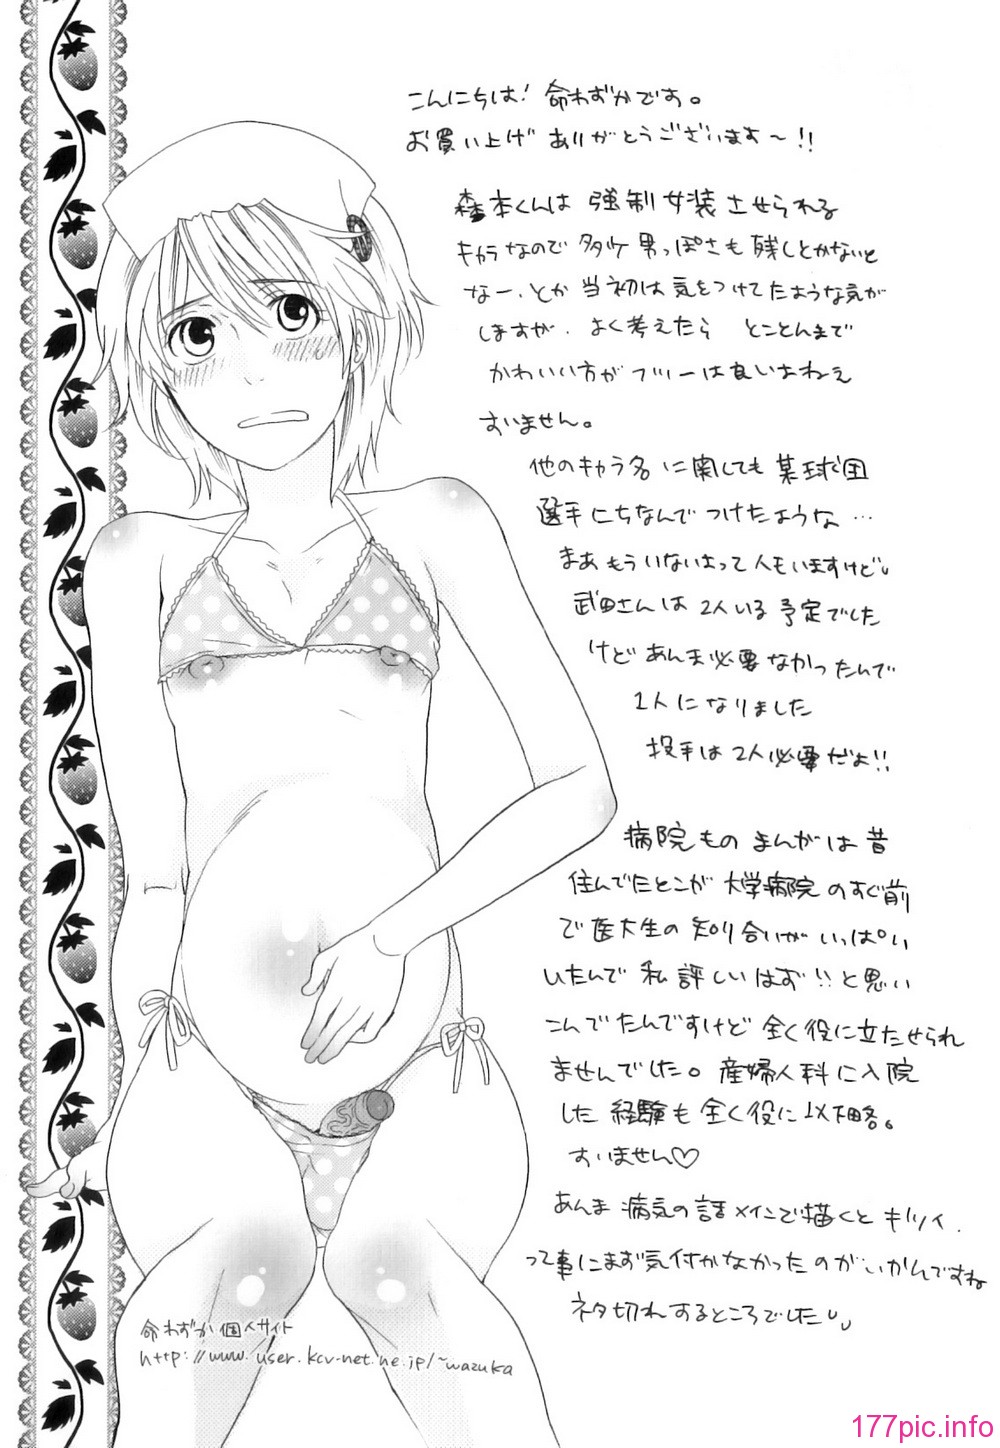 こんにちは! 命わずかです。
お買い上げ ありがとうございます〜!!
森本くんは 強制女装させられる
キャラなので 多少男っぽさも残しとかないと
なー、とか 当初は気をつけてたような気が
しますが、よく考えたら とことんまで
かわいい方が フツーは良いよねえ
すいません。
他のキャラ名に関しても 某球団
選手にちなんで つけたような…
まあ もういない人もいますけど
武田さんは 2人いる予定でした
けど あんま必要なかったんで
1人になりました
投手は 2人必要だよ!!
病院ものまんがは 昔
住んでたとこが 大学病院のすぐ前
で医大生の知り合いが いっぱい
いたんで 私詳しいはず!!と思い
こんでたんですけど 全く役に立たせられ
ませんでした。産婦人科に入院
した経験も全く役に以下略。
すいません♡
あんま 病気の話メインで描くと キツイ、
って事にまず気付かなかったのが いかんですね
ネタ切れするところでした
命わずか個人サイト
http://www.user.kcv-net.ne.jp/~wazuka
177pic.info